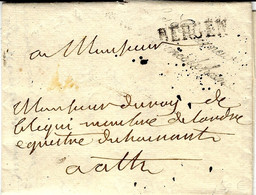 BERGEN
a Monsieur
Monsieur duroy de
bliqui membre de l'ordre
equestre du hainaut
a ath